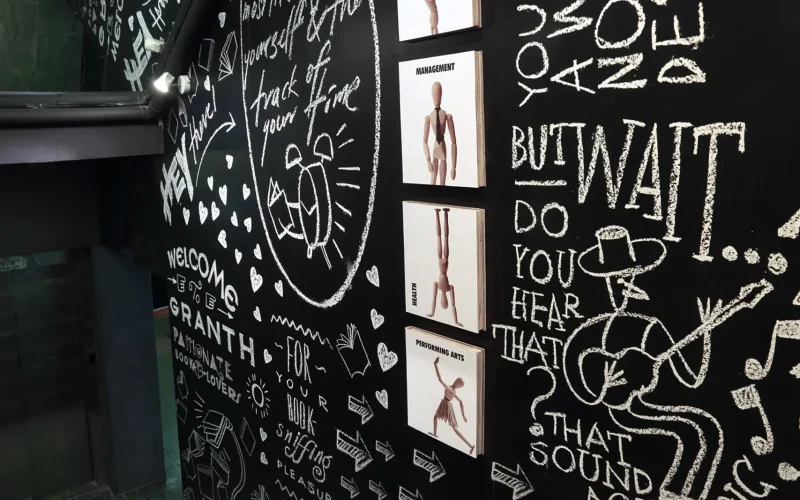 yourself & the
track of
your time
HEY
there!
WELCOME
GRANTH
PASSIONATE
BOOK-LOVERS
FOR
YOUR
BOOK
sniffing
PLEASURE
MANAGEMENT
HEALTH
PERFORMING ARTS
YOU
BUT WAIT...
DO
YOU
HEAR
THAT
?
THAT
SOUND